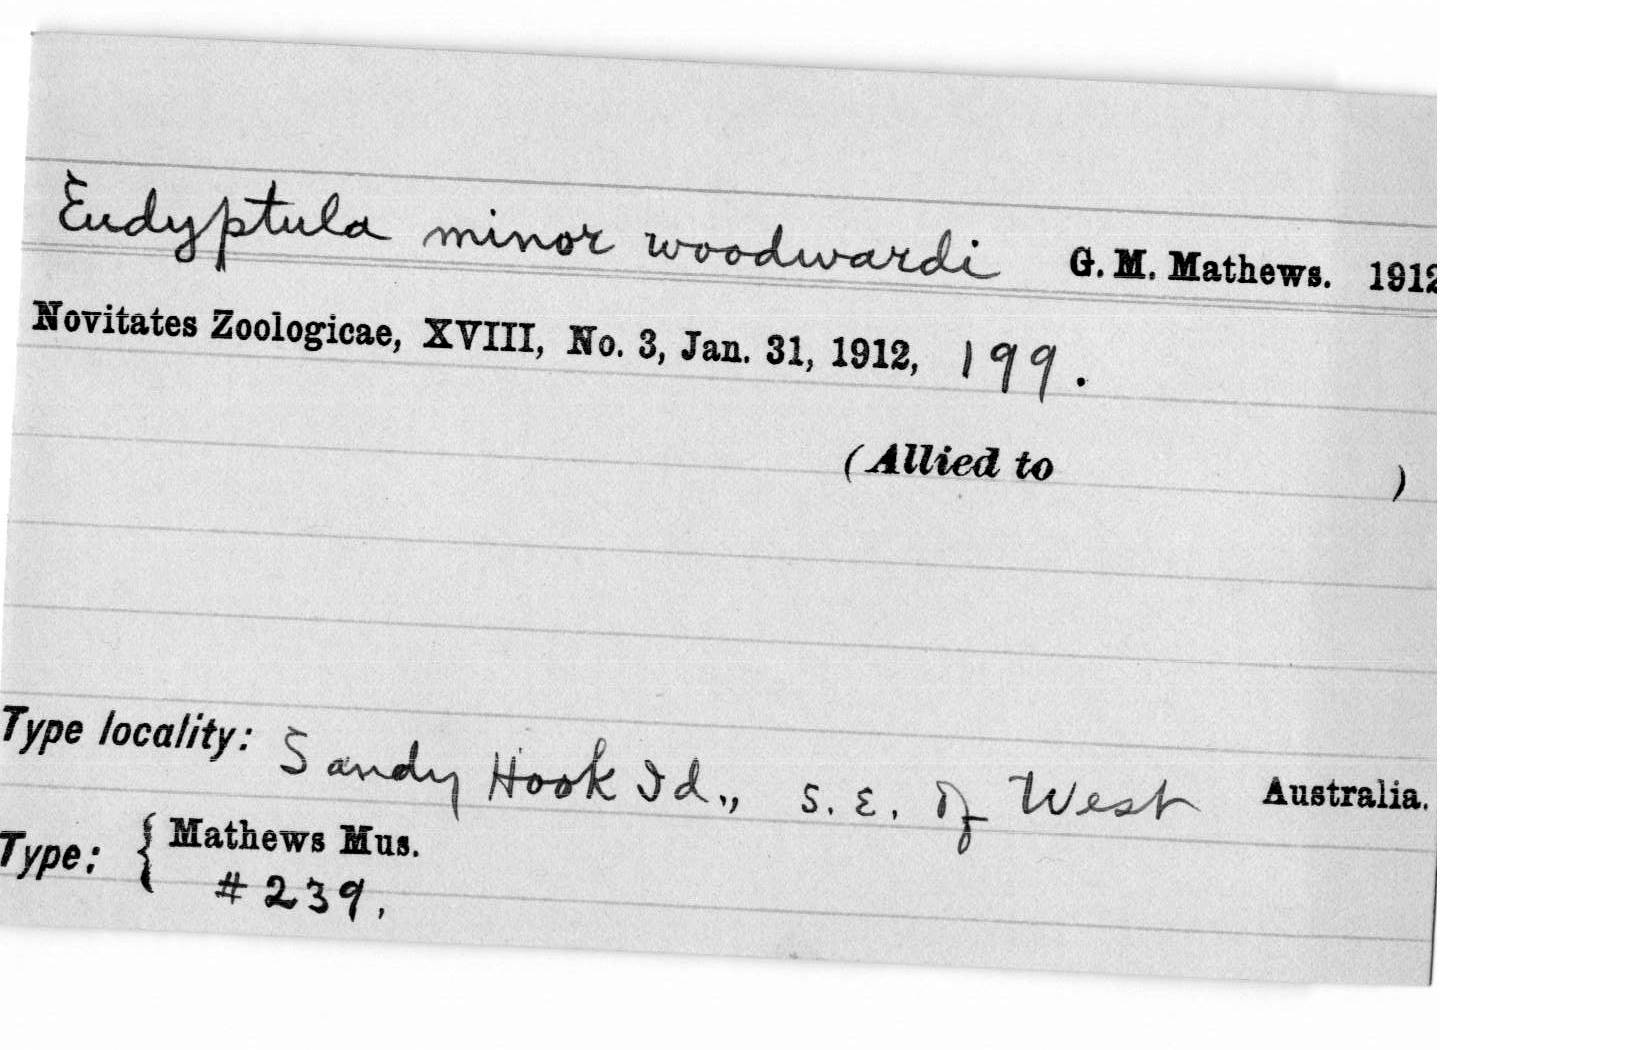 Eudyptula minor woodwardi G. M. Mathews. 1912
Novitates Zoologicae, XVIII, No. 3, Jan. 31, 1912, 199.
(Allied to )
Type locality: Sandy Hook Id., S. E. of West Australia.
Type: { Mathews Mus.
# 239.